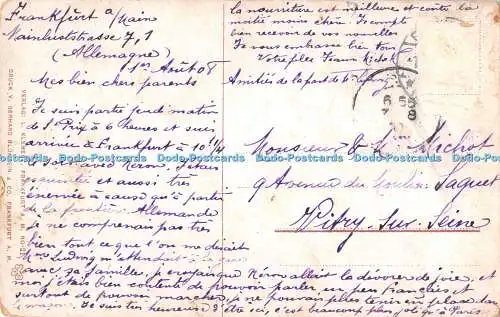 Frankfurt a/Main
Mainluststrasse 7,1
(Allemagne)
11 Août 08
Mes bien chers parents
Je suis partie jeudi matin
de S. Prix à 6 heures et suis
arrivée à Frankfort à 10 h 1/4
J'étais
et aussi très
énervée à cause qu'à partir
de la frontière Allemande
je ne comprenais pas très
bien tout ce que l'on me disait
Mme Ludwig m'attendait à la gare
avec sa famille, je croyais que Néron allait la dévorer de joie, et
moi j'étais bien contente de pouvoir parler un peu Français et
surtout de pouvoir marcher, je ne pouvais plus tenir en place dans
le wagon. Je suis très heureuse ici, c'est beaucoup plus joli qu'à Paris
la nourriture est meilleure et coûte la
moitié moins cher. Je compte
bien recevoir de vos nouvelles
Je vous embrasse bien tous
Votre fille Jeanne Michot
Amitiés de la part de
Monsieur & Mme Michot
9 Avenue du Moulin Saquet
Vitry-sur-Seine
DRUCK V. GERHARD BLÜMLEIN & CO. FRANKFURT A. M.
VERLAG: FRANKFURT A. M. NO
Dodo-Postcards Dodo-Postcards Dodo-Postcards Dodo-Postcards
Dodo-Postcards Dodo-Postcards Dodo-Postcards Dodo-Postcards